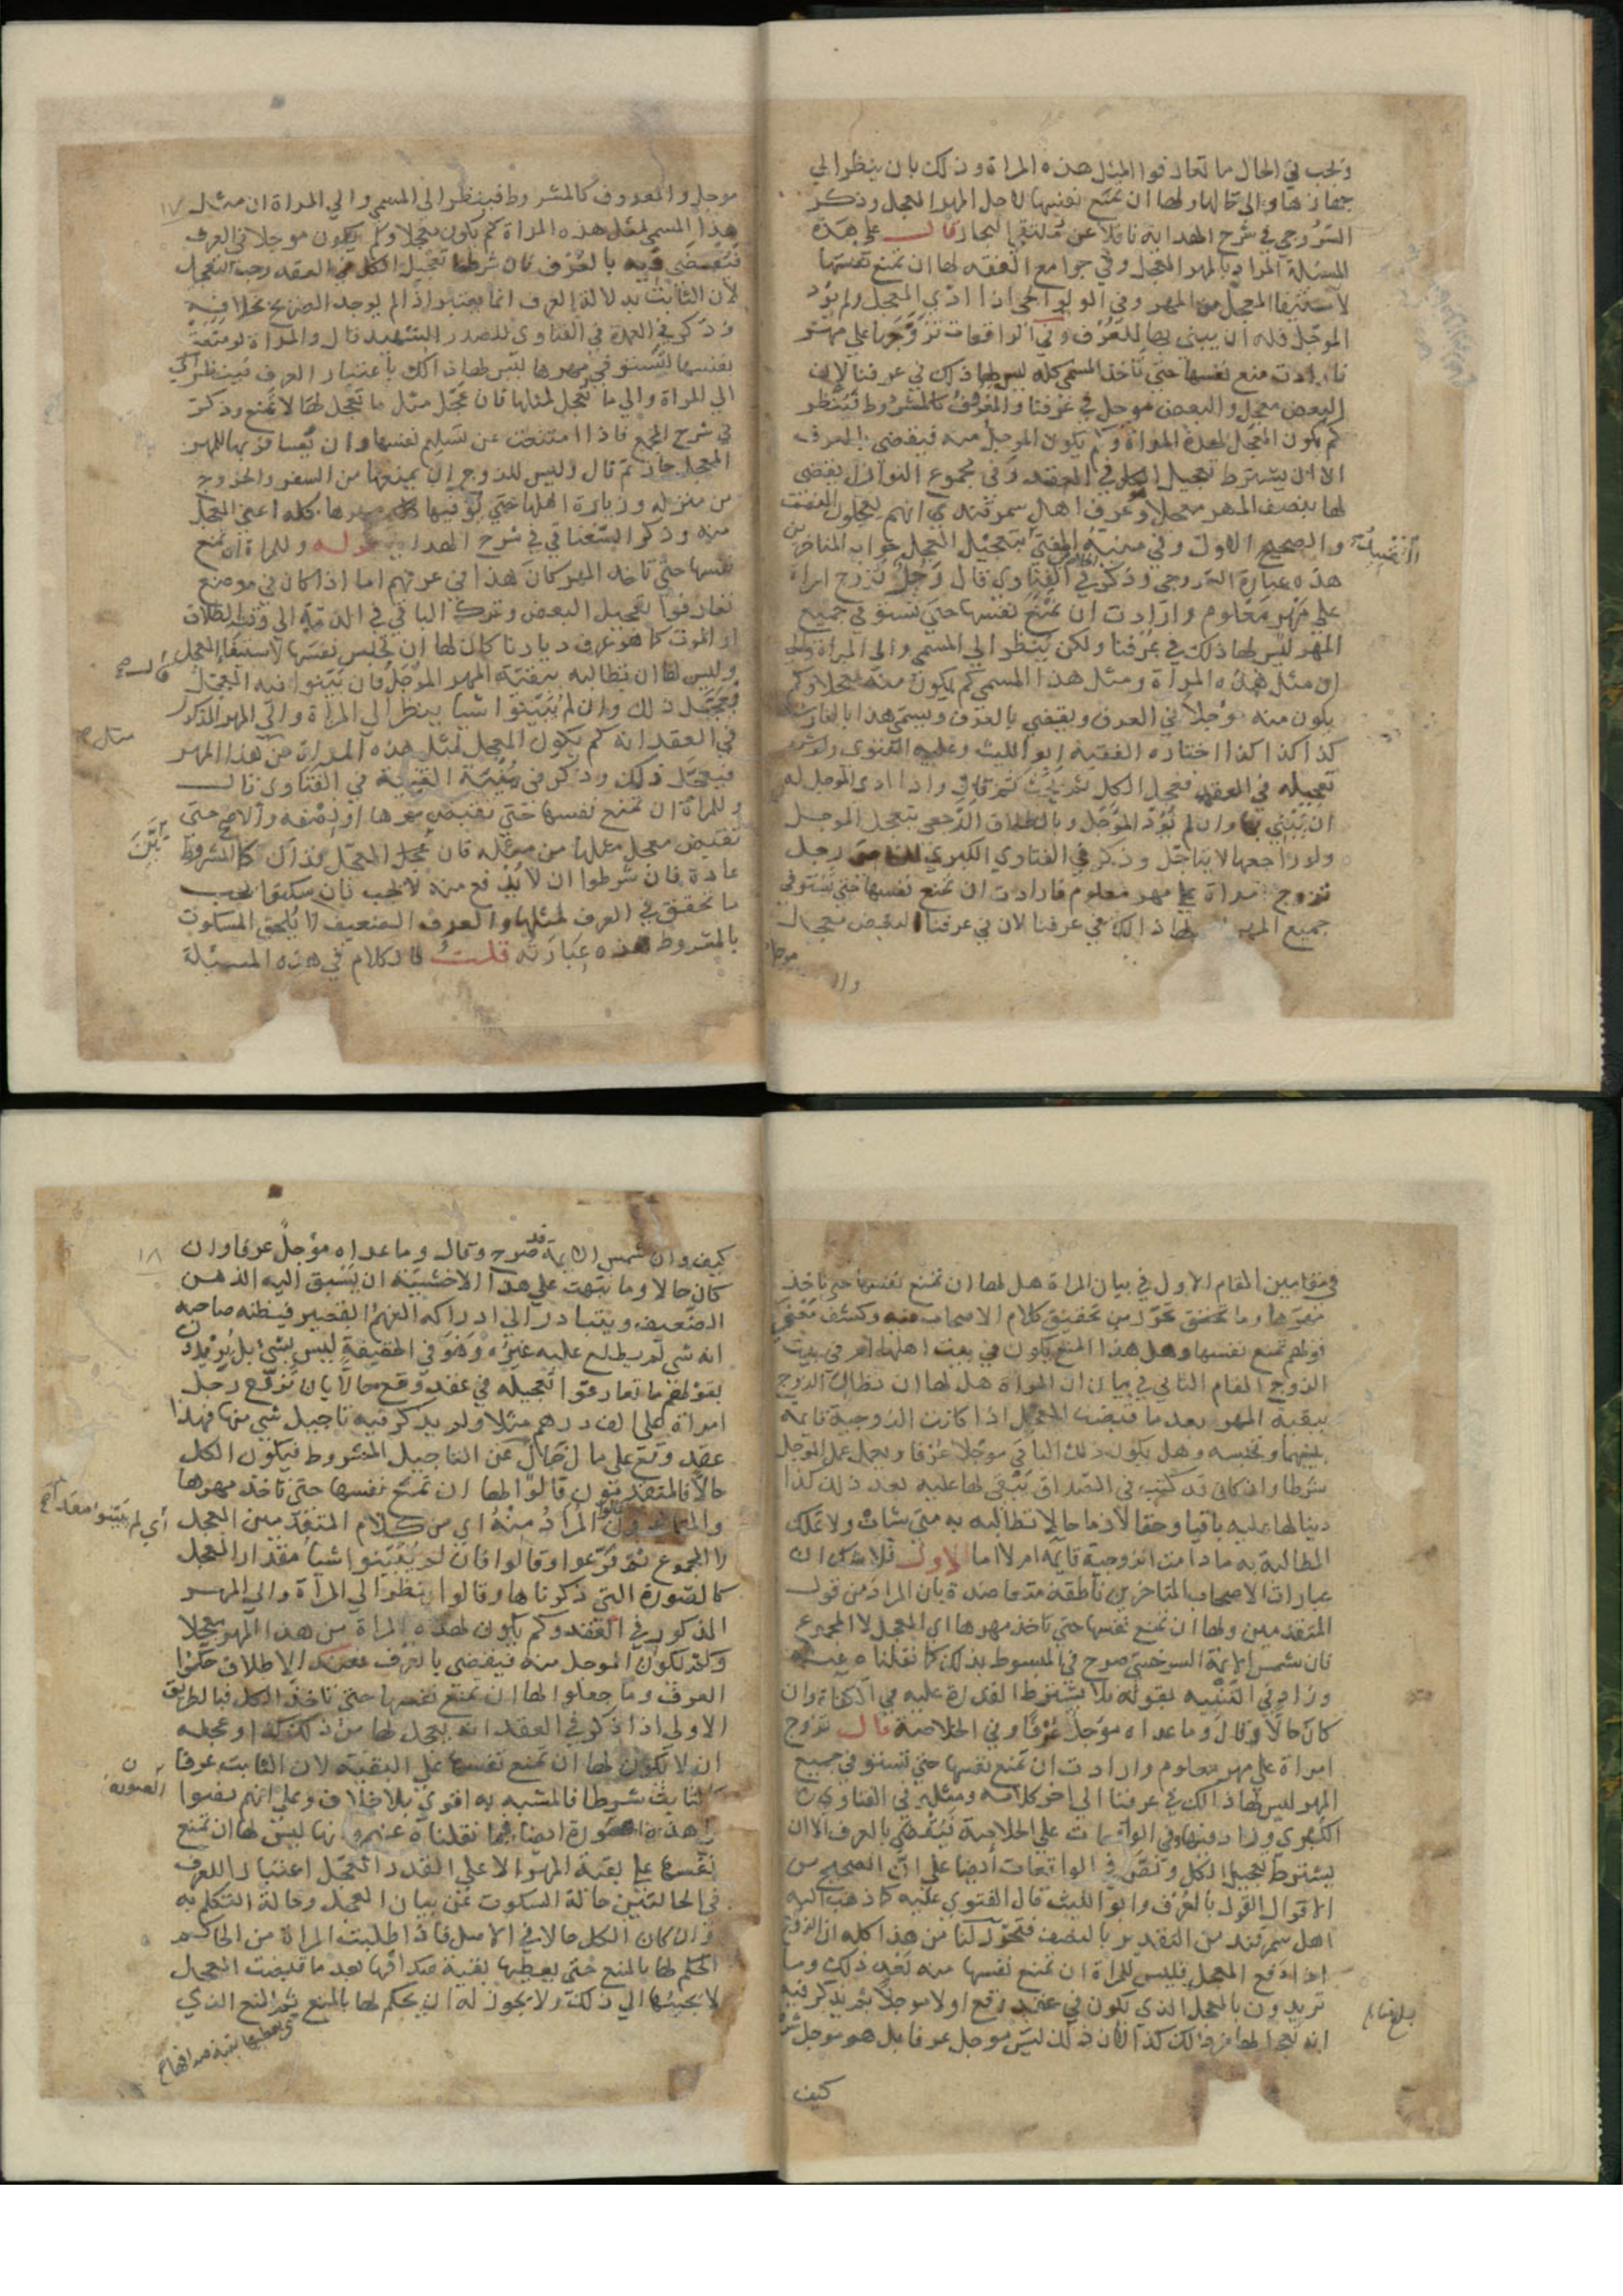 ونجب في الحال ما تعارفوا المثل هذه المراة وذلك بان ينظر الي
جهازها والى حالها ولها ان تمنع نفسها لاجل المهر المعجل وذكر
السروجي في شرح الهداية ناقلا عن قال على هذه
المسئلة المراد بالمهر المعجل وفي جوامع الفقه لها ان تمنع نفسها
لاستيفا المعجل من المهر وفي الولوالجي اذا ادي المعجل ولم يؤد
الموجل فله ان يبني بها للعرف وفي الواقعات تزوجها على مهر
فارادت منع نفسها حتى تاخذ المسمى كله ليس لها ذلك في عرفنا لان
البعض معجل والبعض موجل في عرفنا والمعروف كالمشروط فينظر
كم يكون المعجل لهذه المراة وكم يكون الموجل منه فيقضى بالعرف
الا ان يشترط تعجيل الكل في العقد وفي مجموع النوازل يقضى
لها بنصف المهر معجلا وعرف اهل سمرقند انهم يعجلون النصف
والصحيح الاول وفي منية المفتي بتعجيل المعجل جواب المتاخرين
هذه عبارة السروجي وذكر في الفتاوى قال رجل تزوج امراة
على مهر معلوم وارادت ان تمنع نفسها حتى تستوفي جميع
المهر ليس لها ذلك في عرفنا ولكن ينظر الي المسمى والى المراة والي
ان مثل هذه المراة ومثل هذا المسمي كم يكون منه معجلا وكم
يكون منه موجلا في العرف ويقضى بالعرف ويسمى هذا بالفارسية
كذا كذا اختاره الفقيه ابو الليث وعليه الفتوى ولو شرط
تعجيله في العقد فعجل الكل ثم قال واذا ادى الموجل له
ان يبني بها وان لم يؤد المؤجل وبالطلاق الرجعي يتعجل الموجل
ولو راجعها لا يتاجل وذكر في الفتاوي الكبري رجل
تزوج امراة على مهر معلوم فارادت ان تمنع نفسها حتى تستوفي
جميع المهر لها ذالك في عرفنا لان في عرفنا البعض معجل
وا موجل
١٧
موجل والمعروف كالمشروط فينظر الى المسمي والي المراة ان مثل
هذا المسمي لمثل هذه المراة كم يكون معجلا وكم يكون موجلا في العرف
فيقضي فيه بالعرف فان شرطا تعجيل الكل في العقد وجب التعجيل
لان الثابت بدلالة العرف انما يعتبر اذا لم يوجد الصريح بخلافه
وذكر في العمدة في الفتاوى للصدر الشهيد قال والمراة لو منعت
نفسها لتستوفي مهرها ليس لها ذالك باعتبار العرف فينظر الي
الي المراة والي ما تعجل لمثلها فان عجل مثل ما تعجل لها لا تمنع وذكر
في شرح المجمع فاذا امتنعت عن تسليم نفسها وان يسافر بها للمهر
المعجل جاز ثم قال وليس للزوج ان يمنعها من السفر والخروج
من منزله وزيارة اهلها حتي يوفيها كل مهرها كله اعني المعجل
منه وذكر السغناقي في شرح الهداية قوله وللمراة ان تمنع
نفسها حتى تاخذ المهر كان هذا في عرفهم اما اذا كان في موضع
تعارفوا تعجيل البعض وترك الباقي في الذمة الى وقت الطلاق
او الموت كما هو عرف ديارنا كان لها ان تحبس نفسها لاستيفا المعجل
وليس لها ان تطالبه ببقية المهر المؤجل فان بينوا فيه المعجل
يعجل ذلك وان لم يبينوا شيا ينظر الى المراة والي المهر المذكور
في العقد انه كم يكون المعجل لمثل هذه المراة من هذا المهر
فيعجل ذلك وذكر في في الفتاوى قال
وللمراة ان تمنع نفسها حتي تقبض مهرها او نصفه والاصح حتى
تقبض معجل مثلها من مثله فان عجل المعجل فذاك كالمشروط
عادة فان شرطوا ان لا يدفع منه لا يجب فان سكتوا يجب
ما تحقق في العرف لمثلها والعرف الضعيف لا يلحق المسكوت
بالمشروط هذه عبارته قلت فالكلام في هذه المسئلة
في مقامين المقام الاول في بيان المراة هل لها ان تمنع نفسها حتى تاخذ
مهرها وما تحقق تحرر من تحقيق كلام الاصحاب فيه وكشف معنى
قولهم تمنع نفسها وهل هذا المنع يكون في بيت اهلها ام في بيت
الزوج المقام الثاني في بيان ان المراة هل لها ان تطالب الزوج
ببقية المهر بعد ما قبضت المعجل اذا كانت الزوجية قايمة
بينهما وتحبسه وهل يكون ذلك الباقي موجلا عرفا ويعمل عمل الموجل
شرطا وان كان قد كتب في الصداق تبقى لها عليه بعد ذلك كذا
دينا لها عليه باقيا وحقا لازما حالا تطالبه به متى شات ولا تملك
المطالبة به ما دامت الزوجية قايمة ام لا اما الاول فلا شك ان
عبارات الاصحاب المتاخرين ناطقة متعاضدة بان المراد من قول
المتقدمين ولها ان تمنع نفسها حتى تاخذ مهرها اي المعجل لا المجموع
فان شمس الايمة السرخسي صرح في المبسوط بذلك كما نقلناه عنه
وزاد في القنية بقوله فلا يشترط القدرة عليه في الكفاة وان
كان حالا وقال وما عداه مؤجل عرفا وفي الخلاصة قال تزوج
امراة على مهر معلوم وارادت ان تمنع نفسها حتى تستوفي جميع
المهر ليس لها ذالك في عرفنا الى اخر كلامه ومثله في الفتاوى
الكبرى وزاد فيها وفي الواقعات علي الخلاصة فيقضى بالعرف الا ان
يشترط تعجيل الكل ونص في الواقعات ايضا على ان الصحيح من
الاقوال القول بالعرف وابو الليث قال الفتوى عليه كما ذهب اليه
اهل سمرقند من التقدير بالنصف فتحرر لنا من هذا كله ان الزوج
اذا دفع المعجل فليس للمراة ان تمنع نفسها منه بعد ذلك وما
تريدون بالمعجل الذي يكون في عقد وقع اولا موجلا ثم يذكر فيه
انه يعجل لها من ذلك كذا لان ذلك ليس موجل عرفا بل هو موجل شرطا
كيف
١٨
كيف وان شمس الايمة قد صرح وقال وما عداه مؤجل عرفا وان
كان حالا وما نبهت على هذا الا خشية ان يسبق اليه الذهن
الضعيف ويتبادر الى ادراكه الفهم القصير فيظنه صاحبه
انه شي لم يطلع عليه غيره وهو في الحقيقة ليس بشئ بل يريدون
بقولهم ما تعارفوا تعجيله في عقد وقع حالا بان تزوج رجل
امراة على الف درهم مثلا ولم يذكر فيه تاجيل شي منها فهذا
عقد وقع على مال حال عن التاجيل المشروط فيكون الكل
حالا فالمتقدمون قالوا لها ان تمنع نفسها حتى تاخذ مهرها
قالوا المراد منه اي من كلام المتقدمين المعجل
لا المجموع ثم فرعوا وقالوا فان لم يبينوا شيا مقدار المعجل
كالصورة التي ذكرناها وقالوا ينظر الى المراة والى المهر
المذكور في العقد وكم يكون لهذه المراة من هذا المهر معجلا
وكم يكون الموجل منه فيقضى بالعرف فعند الاطلاق حكموا
العرف وما جعلوا لها ان تمنع نفسها حتى تاخذ الكل فبالطريق
الاولى اذا ذكر في العقد انه يعجل لها من ذلك كذا وعجله
ان لا يكون لها ان تمنع نفسها على البقية لان الثابت عرفا
كالثابت شرطا فالمشبه به اقوى بلا خلاف وعلى انهم نصوا
هذه الصورة ايضا فيما نقلناه عنهم انها ليس لها ان تمنع
نفسها على بقية المهر الا على القدر المعجل اعتبارا للعرف
في الحالتين حالة السكوت عن بيان المعجل وحالة التكلم به
وان كان الكل حالا في الاصل فاذا طلبت المراة من الحاكم
الحكم لها بالمنع حتى يعطيها بقية صداقها بعد ما قبضت المعجل
لا يجيبها الى ذلك ولا يجوز له ان يحكم لها بالمنع ثم المنع الذي